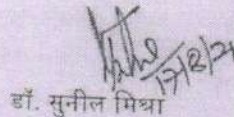 17/8/21
डॉ. सुनील मिश्रा